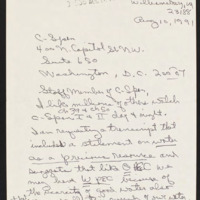 Williamsburg, VA
23188
Aug 10, 1991
C-Span
400 N. Capitol St NW.
Suite 650
Washington, D.C. 20007
Staff Members of C-Span,
I like millions of others watch
C-Span I & II day & night.
I am requesting a transcript that
included a statement on water
as a precious resource and
suggested that like OPEC we
may have W PEC because of
the scarcity of good water also